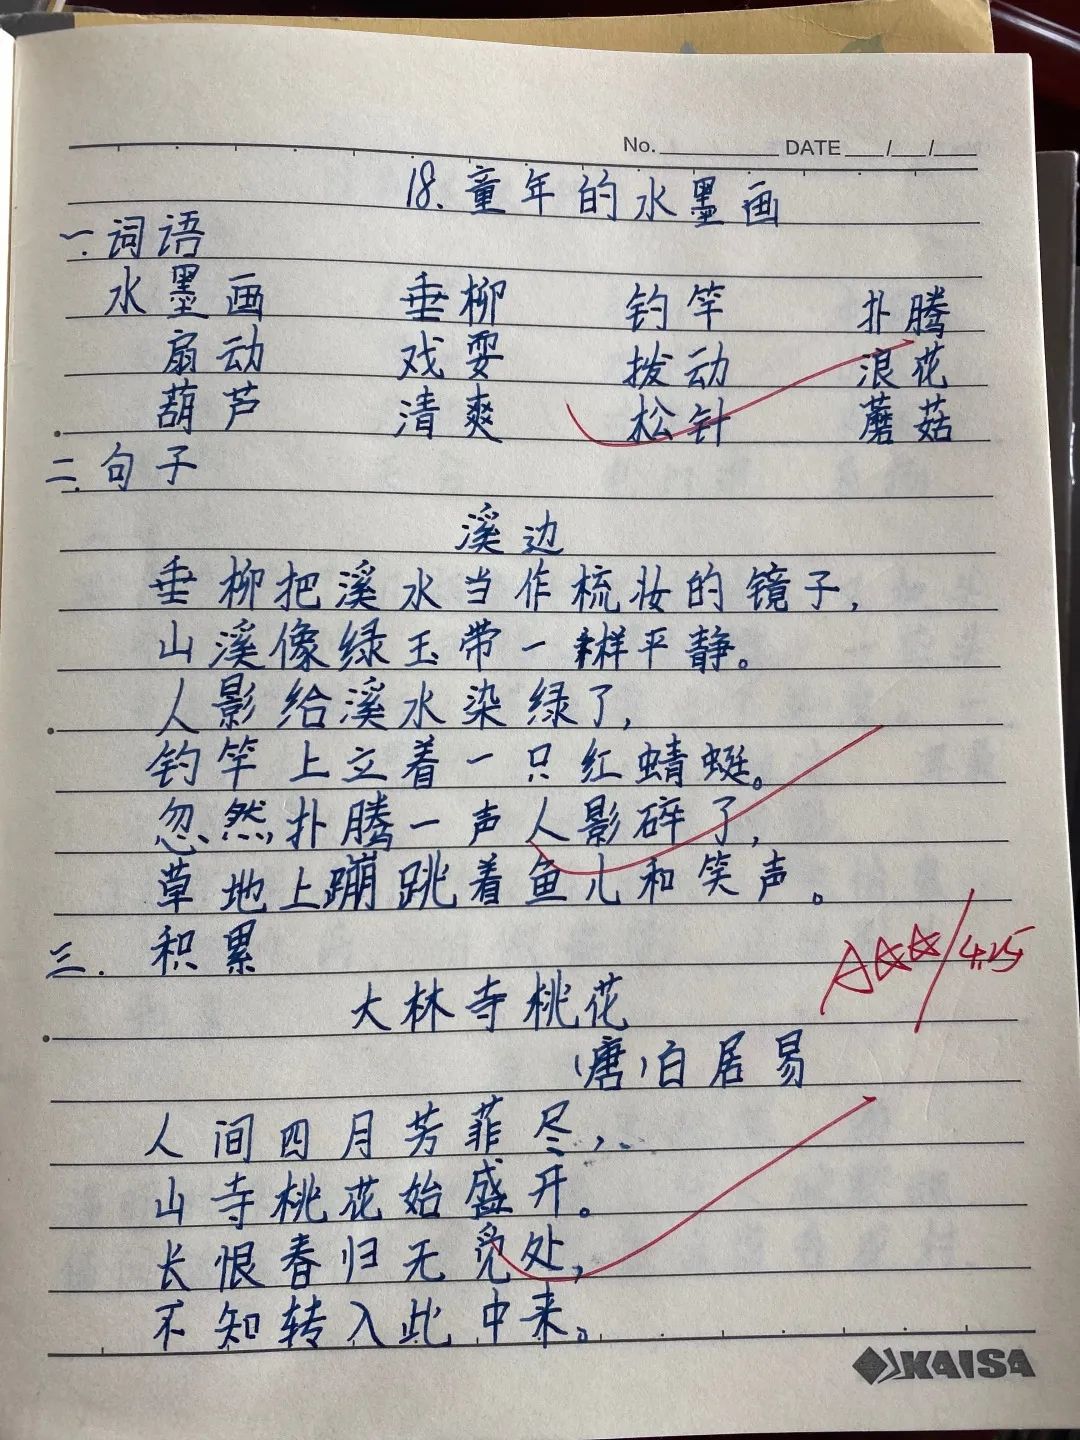 No. DATE / /
18.童年的水墨画
一.词语
水墨画 垂柳 钓竿 扑腾
扇动 戏耍 拨动 浪花
葫芦 清爽 松针 蘑菇
二.句子
溪边
垂柳把溪水当作梳妆的镜子,
山溪像绿玉带一样平静。
人影给溪水染绿了,
钓竿上立着一只红蜻蜓。
忽然扑腾一声人影碎了,
草地上蹦跳着鱼儿和笑声。
三.积累
A☆☆/4.25
大林寺桃花
(唐)白居易
人间四月芳菲尽,
山寺桃花始盛开。
长恨春归无觅处,
不知转入此中来。
KAISA